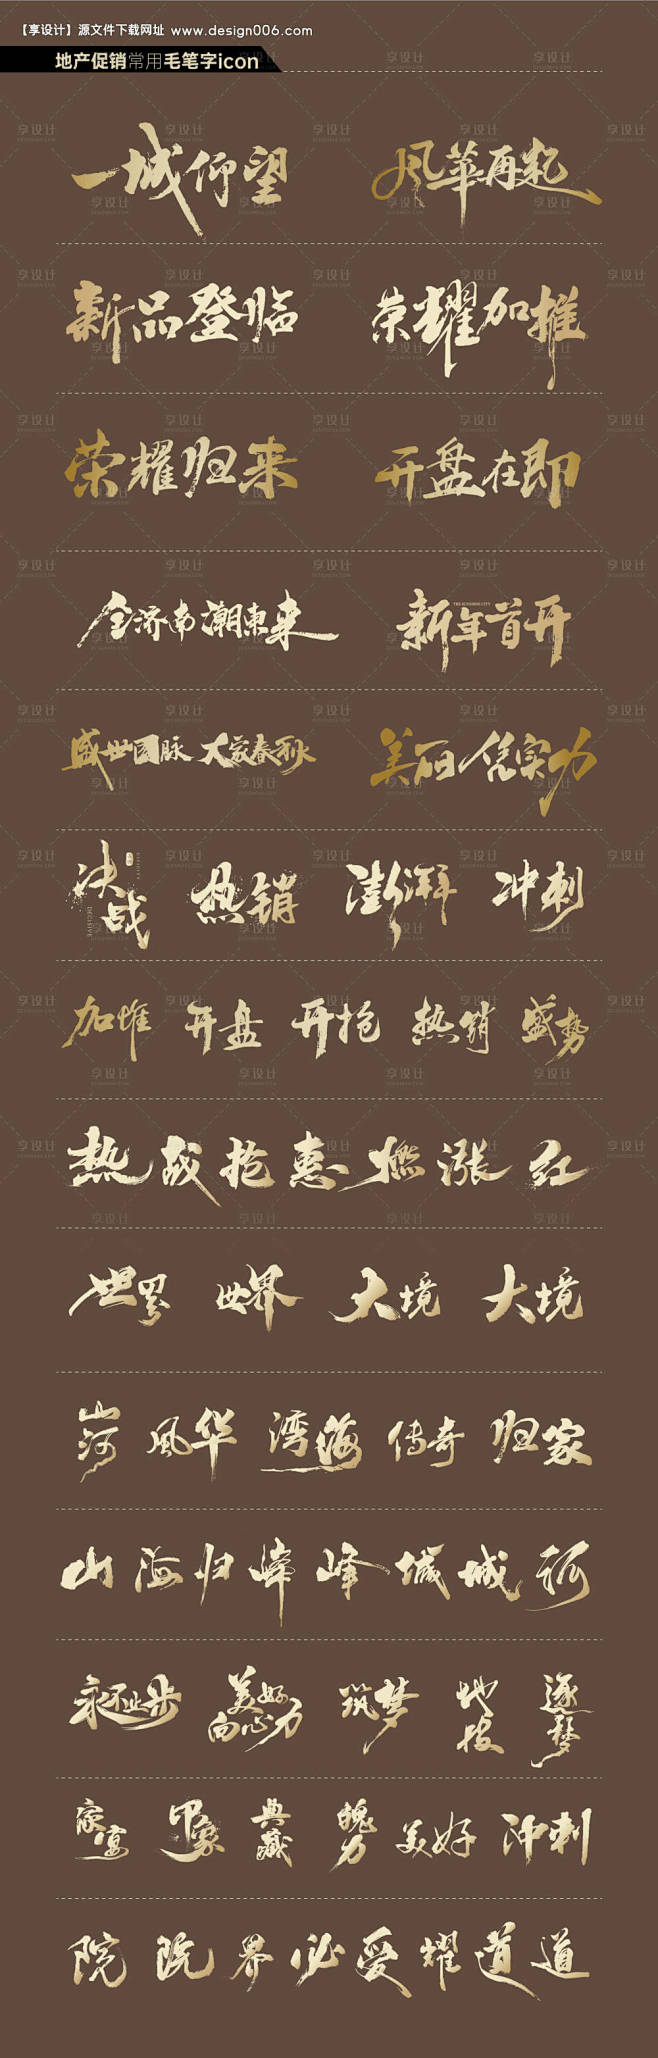 【享设计】源文件下载网址 www.design006.com
地产促销常用毛笔字icon
一城仰望 風華再起
新品登临 荣耀加推
荣耀归来 开盘在即
全济南潮東来 新年首开
盛世国脉 大家春秋 美丽凭实力
决战 DECISIVE 热销 澎湃 冲刺
加推 开盘 开抢 热销 盛势
热 战 抢 惠 燃 涨 红
世界 世界 大境 大境
山河 風华 湾海 传奇 归家
山 海 归 峰 峰 城 城 河
永不止步 美好向心力 筑梦 地技 逐梦
家宴 印象 典藏 魄力 美好 冲刺
院 院 界 必 爱 耀 道 道